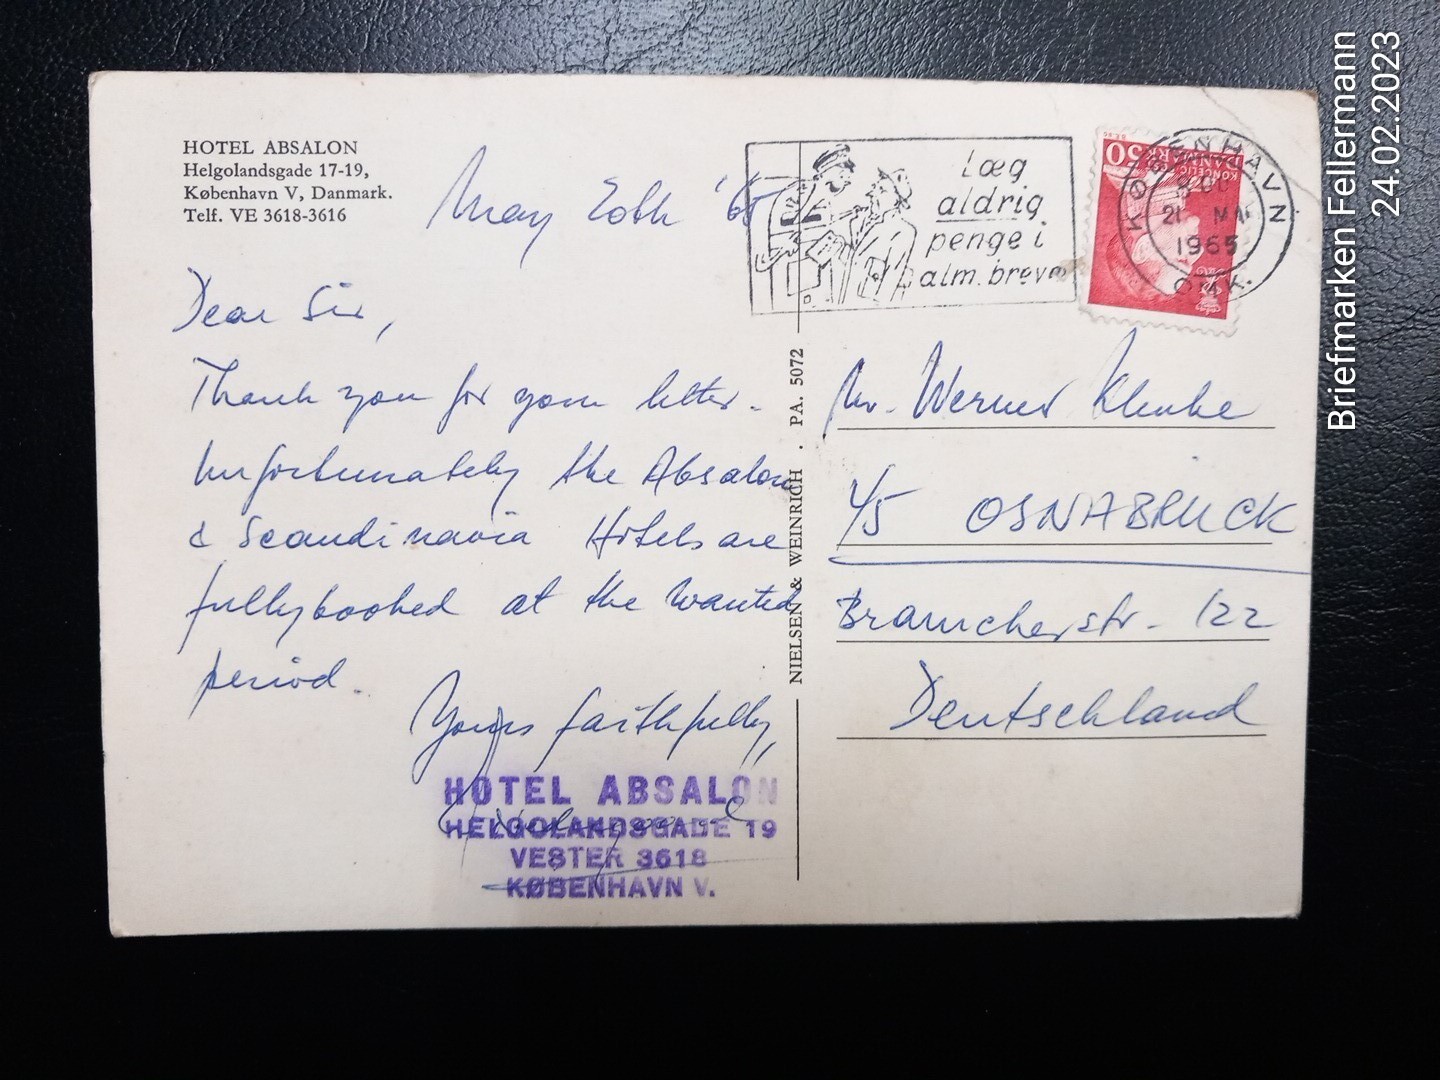 HOTEL ABSALON
Helgolandsgade 17-19,
København V, Danmark.
Telf. VE 3618-3616
May 20th '65
Dear Sir,
Thank you for your letter.
Unfortunately the Absalon
& Scandinavia Hotels are
fully booked at the wanted
period.
Yours faithfully,
HOTEL ABSALON
HELGOLANDSGADE 19
VESTER 3618
KØBENHAVN V.
NIELSEN & WEINRICH . PA. 5072
Læg
aldrig
penge i
alm. breve
50
DANMARK
KONGELIG
KØBENHAVN
21 MA
1965
OMK.
Mr. Werner Klenke
45 OSNABRUCK
Bramscherstr. 122
Deutschland
Briefmarken Fellermann
24.02.2023